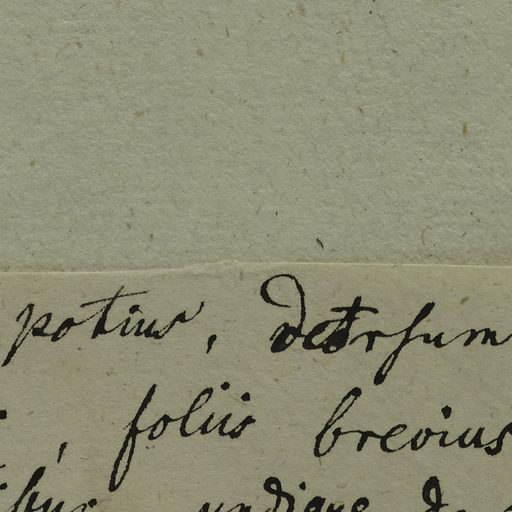 potius, deorsum
, foliis brevius
undique